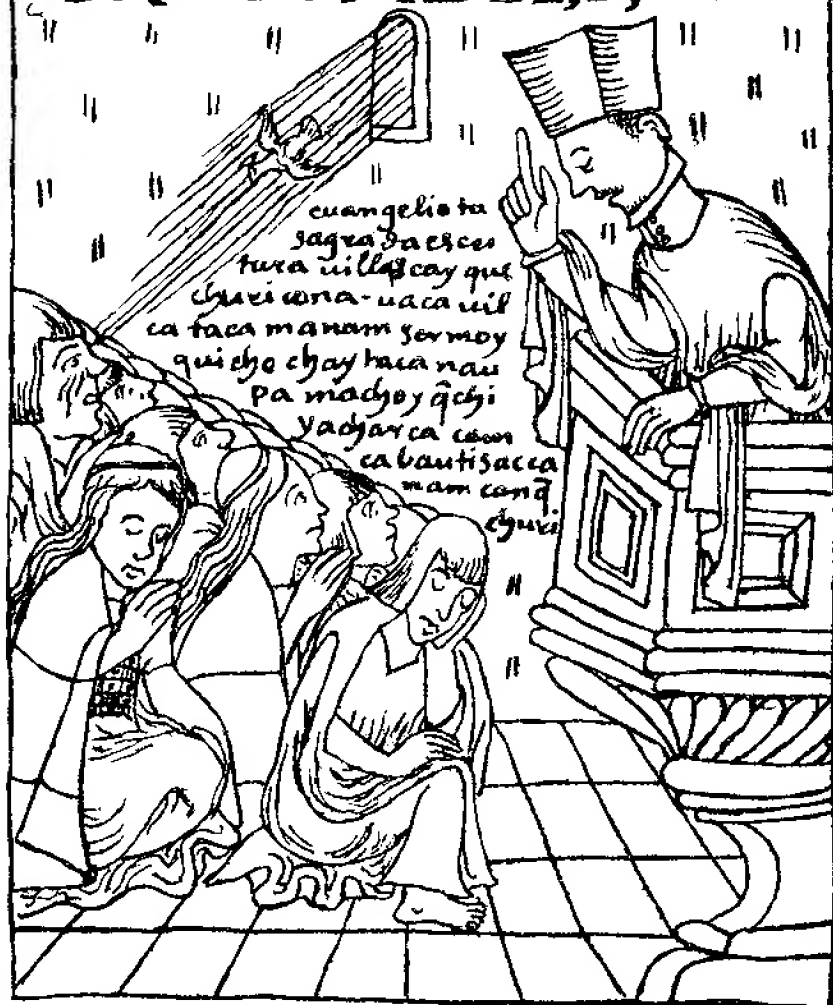 euangelio ta
sagrada escri
tura uillascay que
churi cona - uaca uil
ca taca manam seruioy
qui cho chay taca nau
pa machoy q̃chi
yacharca cam
ca bautisacca
nam canq̃
churi